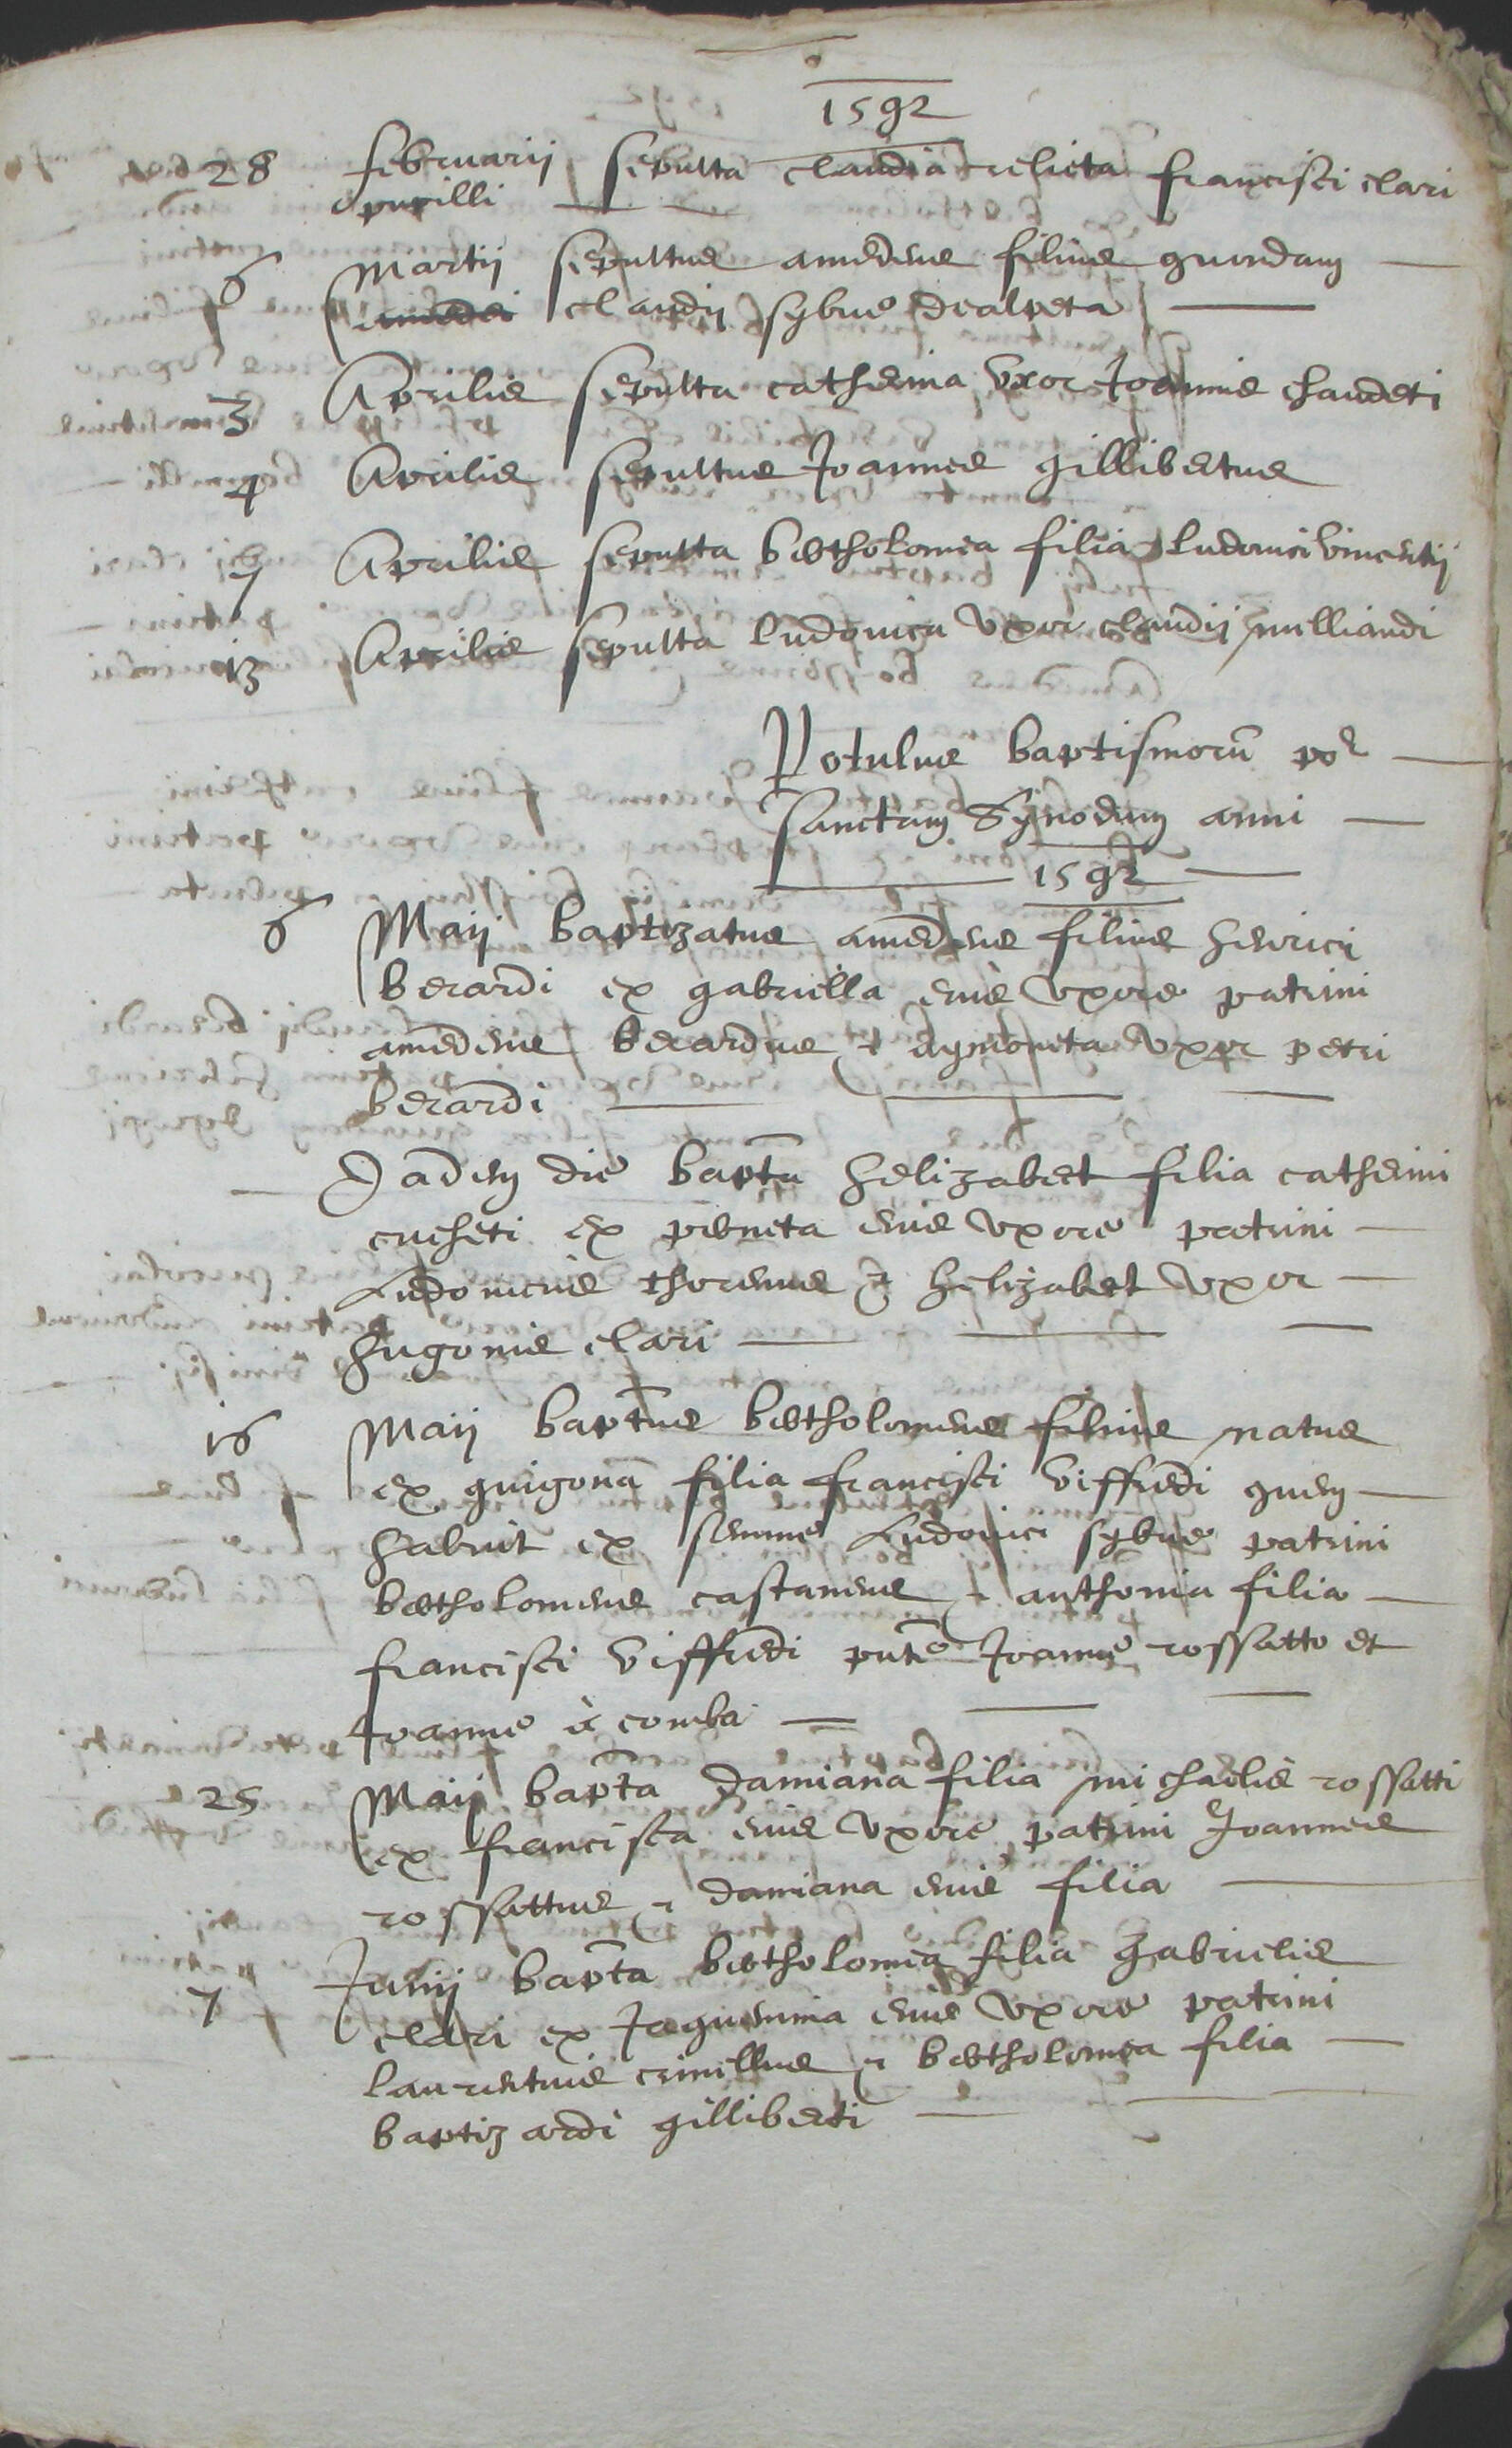 1592
28 februarii sepulta claudia relicta francisci clari
pupilli
6 Martii sepultus amedeus filius quondam
amedei claudii sybue dealpeta
3 Aprilis sepulta catherina uxor Joannis chaudeti
4 Aprilis sepultus Joannes gillibertus
7 Aprilis sepulta bertholomea filia ludovici vincentii
13 Aprilis sepulta ludovica uxor claudii milliandi
Rotulus baptismorū post
Sanctam Synodum anni
1592
6 Maii baptizatus amedeus filius henrici
berardi ex gabriella eius uxore patrini
amedeus berardus & aymoneta uxor petri
berardi
Eadem die bapta helizabet filia catherini
cucheti ex perneta eius uxore patrini
Ludovicus thorenus & helizabet uxor
hugonis clari
16 Maii baptus bertholomeus filius natus
ex guigona filia francisci viffredi quem
habuit ex semine Ludovici sybue patrini
bertholomeus castaneus & anthonia filia
francisci viffredi pnte Joanne rossatto et
Joanne à comba
25 Maii bapta damiana filia michaelis rossatti
ex francisca eius uxore patrini Joannes
rossattus & damiana eius filia
7 Junii bapta bertholomea filia gabrielis
clari ex Jaquemina eius uxore patrini
laurentius crinellus & bertholomea filia
baptizardi gilliberti